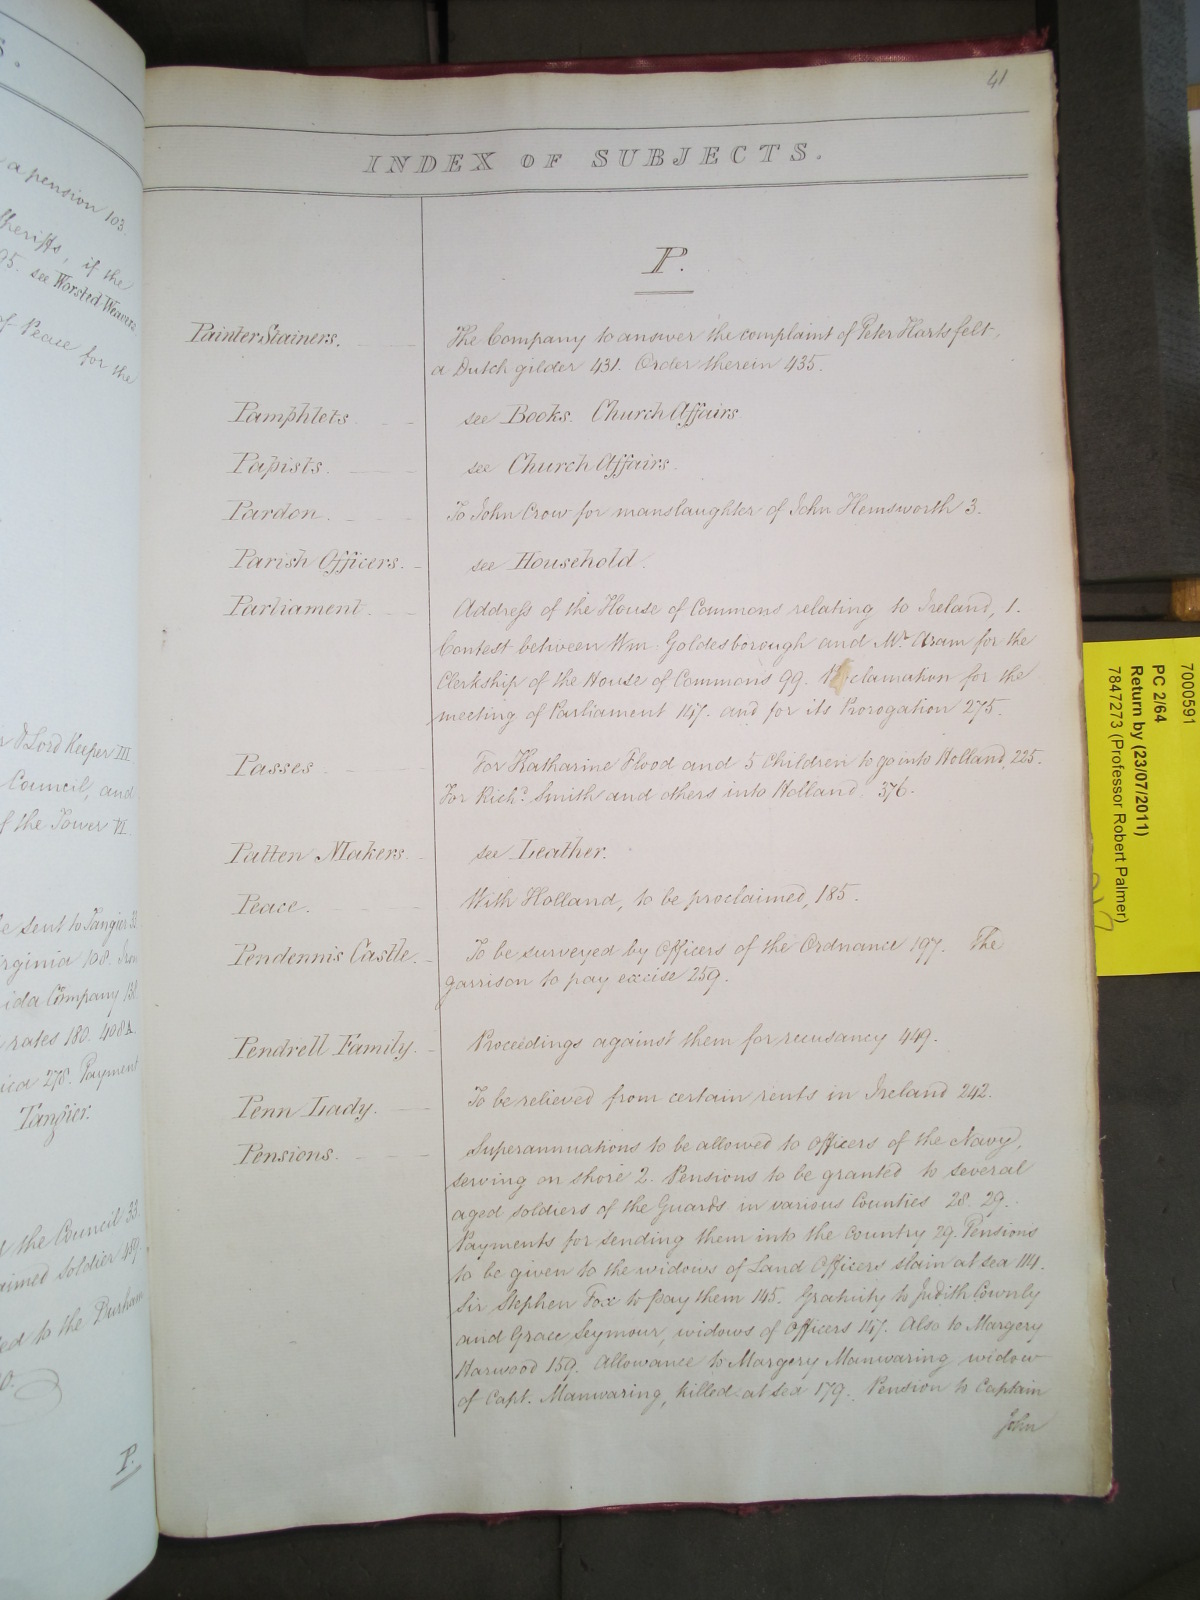 S.
a pension 103.
Sheriffs, if the
95. see Worsted Weavers
of Peace for the
r & Lord Keeper III
Council, and
f the Tower VI.
be sent to Tangier 3
irginia 108.
ida Company 13
rates 180. 408A
ica 278. Payment
Tangier.
d the Council 33.
aimed soldier 49
ed to the Durham
0.
P.
41
INDEX OF SUBJECTS.
P.
Painter Stainers. The Company to answer the complaint of Peter Hartsfelt,
a Dutch gilder 431. Order therein 435.
Pamphlets see Books. Church Affairs
Papists. see Church Affairs.
Pardon. To John Crow for manslaughter of John Hemsworth 3.
Parish Officers. see Household.
Parliament. Address of the House of Commons relating to Ireland, 1.
Contest between Wm. Goldesborough and Mr. Aram for the
Clerkship of the House of Commons 99. Proclamation for the
meeting of Parliament 147. and for its Prorogation 275.
Passes For Katharine Flood and 5 Children to go into Holland, 225.
For Richd. Smith and others into Holland 376.
Patten Makers. see Leather.
Peace. With Holland, to be proclaimed, 185.
Pendennis Castle. To be surveyed by Officers of the Ordnance 197. The
garrison to pay excise 259.
Pendrell Family. Proceedings against them for recusancy 449.
Penn Lady. To be relieved from certain rents in Ireland 242.
Pensions. Superannuations to be allowed to Officers of the Navy,
serving on shore 2. Pensions to be granted to several
aged soldiers of the Guards in various Counties 28. 29.
Payments for sending them into the country 29. Pensions
to be given to the widows of Land Officers slain at sea 114.
Sir Stephen Fox to pay them 145. Gratuity to Judith Townly
and Grace Seymour, widows of Officers 147. Also to Margery
Harwood 159. Allowance to Margery Manwaring widow
of Capt. Manwaring, killed at sea 179. Pension to Captain
John
7000591
PC 2/64
Return by (23/07/2011)
7847273 (Professor Robert Palmer)